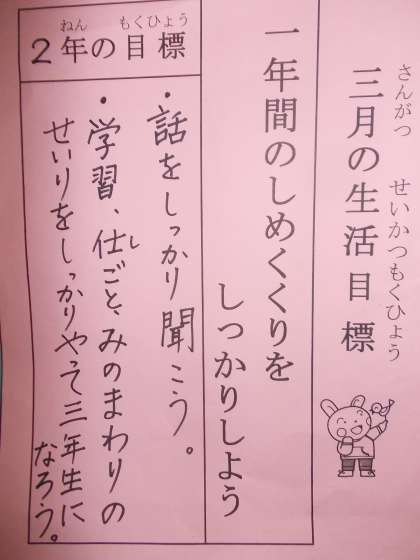 三月の生活目標
さんがつ せいかつもくひょう
一年間のしめくくりを
しっかりしよう
2年の目標
ねん もくひょう
・話をしっかり聞こう。
・学習、仕ごと、みのまわりの
し
せいりをしっかりやって三年生に
なろう。